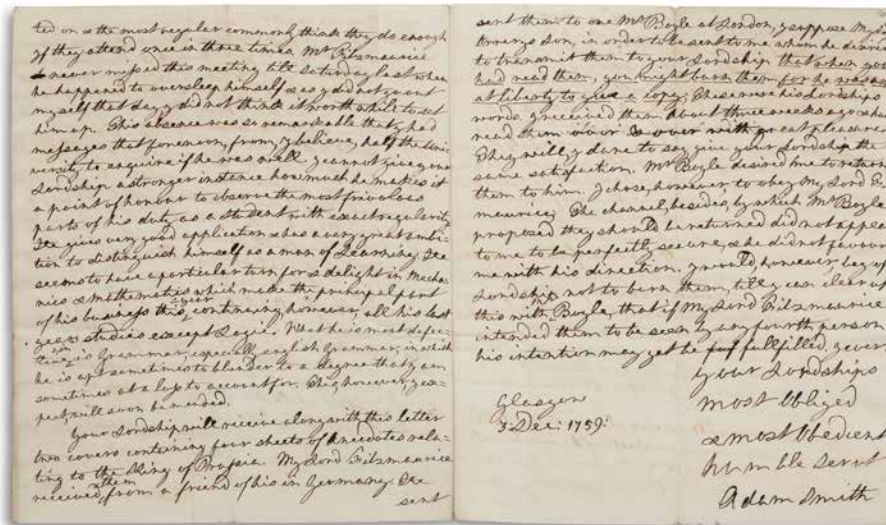 ted on is the most regular commonly think they do enough
if they attend once in three times. Mr Fitzmaurice
never missed this meeting till saturday last when
he happened to oversleep himself & as y did not go out
myself that day y did not think it worth while to let
him up. This absence was so remarkable that y had
messages that forenoon, from, y believe, half the Uni=
versity to enquire if he was well. y cannot give your
Lordship a stronger instance how much he makes it
a point of honour to observe the most frivolous
parts of his duty as a student with exact regularity.
He gives very good application & has a very great ambi=
tion to distinguish himself as a man of Learning. He
seems to have a particular turn for & delight in Mecha=
nics & Mathematics which make the principal part
of his business this year, continuing, however, all his last
years studies except Logic. What he is most defec=
tive in is Grammar, especially english Grammar, in which
he is apt sometimes to blunder to a degree that y am
sometimes at a loss to account for. This, however, y ex=
pect, will soon be mended.
Your Lordship will receive along with this letter
two covers containing four sheets of Anecdotes rela=
ting to the King of Prussia. My Lord Fitzmaurice
received them from a friend of his in Germany. He
sent
sent them to one Mr Boyle at London, y suppose My Lord
Orrerys Son, in order to be sent to me whom he desired
to transmit them to your Lordship that when you
had read them, you might burn them for he was not
at liberty to give a copy; These were his Lordships
words. y received them about three weeks ago & have
read them over & over with great pleasure.
They will, y dare to say, give your Lordship the
same satisfaction. Mr Boyle desired me to return
them to him. I chose, however, to obey My Lord Fitz
maurice; The channel, besides, by which Mr Boyle
proposed they should be returned did not appear
to me to be perfectly secure, & he did not favour
me with his direction. y would, however, beg of your
Lordship not to burn them, till y can clear up
this with Mr Boyle, that if My Lord Fitzmaurice
intended them to be seen by any fourth person
his intention may yet be fulfilled. y ever
your Lordships
most Obliged
& most Obedient
humble Servt
Adam Smith
Glasgow
3 Dec: 1759.